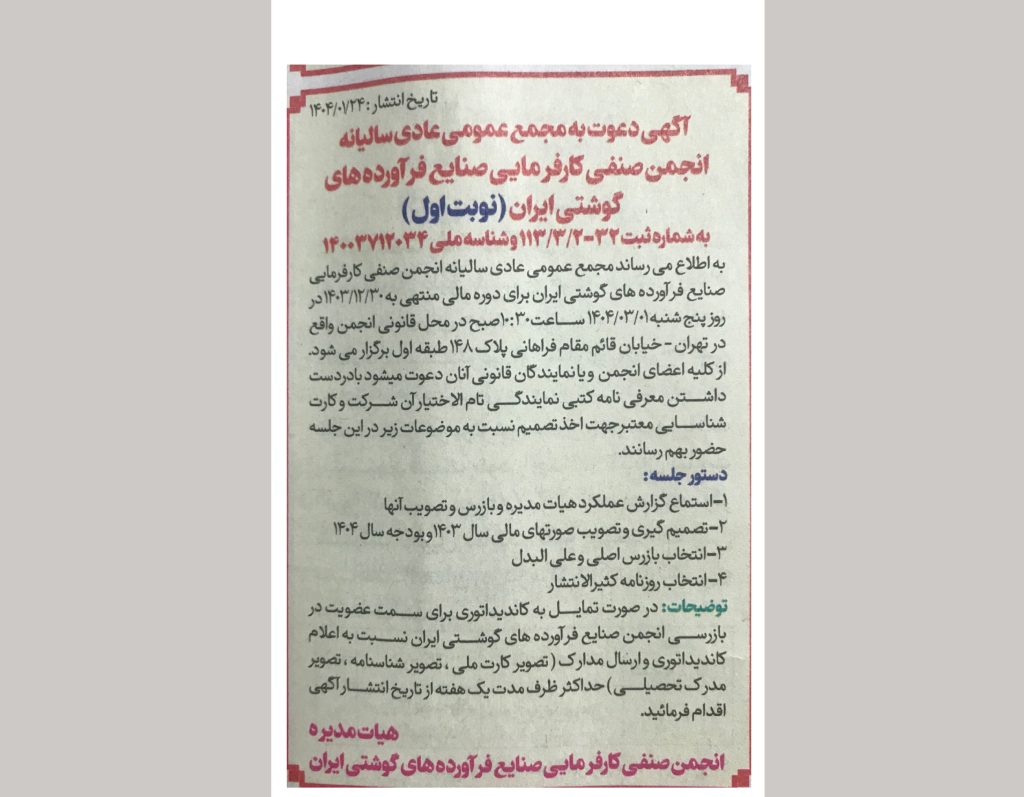 تاریخ انتشار: ۱۴۰۴/۰۱/۲۴
آگهی دعوت به مجمع عمومی عادی سالیانه
انجمن صنفی کارفرمایی صنایع فرآورده های
گوشتی ایران (نوبت اول)
به شماره ثبت ۳۲-۱۱۳/۳/۲ و شناسه ملی ۱۴۰۰۳۷۱۲۰۳۴
به اطلاع می رساند مجمع عمومی عادی سالیانه انجمن صنفی کارفرمایی
صنایع فرآورده های گوشتی ایران برای دوره مالی منتهی به ۱۴۰۳/۱۲/۳۰ در
روز پنج شنبه ۱۴۰۴/۰۳/۰۱ ساعت ۱۰:۳۰ صبح در محل قانونی انجمن واقع
در تهران - خیابان قائم مقام فراهانی پلاک ۱۴۸ طبقه اول برگزار می شود.
از کلیه اعضای انجمن و یا نمایندگان قانونی آنان دعوت میشود بادردست
داشتن معرفی نامه کتبی نمایندگی تام الاختیار آن شرکت و کارت
شناسایی معتبر جهت اخذ تصمیم نسبت به موضوعات زیر در این جلسه
حضور بهم رسانند.
دستور جلسه:
۱-استماع گزارش عملکرد هیات مدیره و بازرس و تصویب آنها
۲-تصمیم گیری و تصویب صورتهای مالی سال ۱۴۰۳ و بودجه سال ۱۴۰۴
۳-انتخاب بازرس اصلی و علی البدل
۴-انتخاب روزنامه کثیرالانتشار
توضیحات: در صورت تمایل به کاندیداتوری برای سمت عضویت در
بازرسی انجمن صنایع فرآورده های گوشتی ایران نسبت به اعلام
کاندیداتوری و ارسال مدارک ( تصویر کارت ملی ، تصویر شناسنامه ، تصویر
مدرک تحصیلی ) حداکثر ظرف مدت یک هفته از تاریخ انتشار آگهی
اقدام فرمائید.
هیات مدیره
انجمن صنفی کارفرمایی صنایع فرآورده های گوشتی ایران